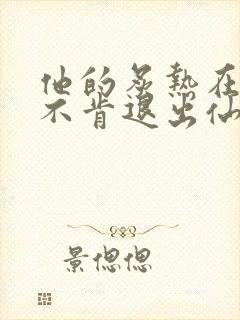 他的炙热在
不肯退出仙
景偲偲